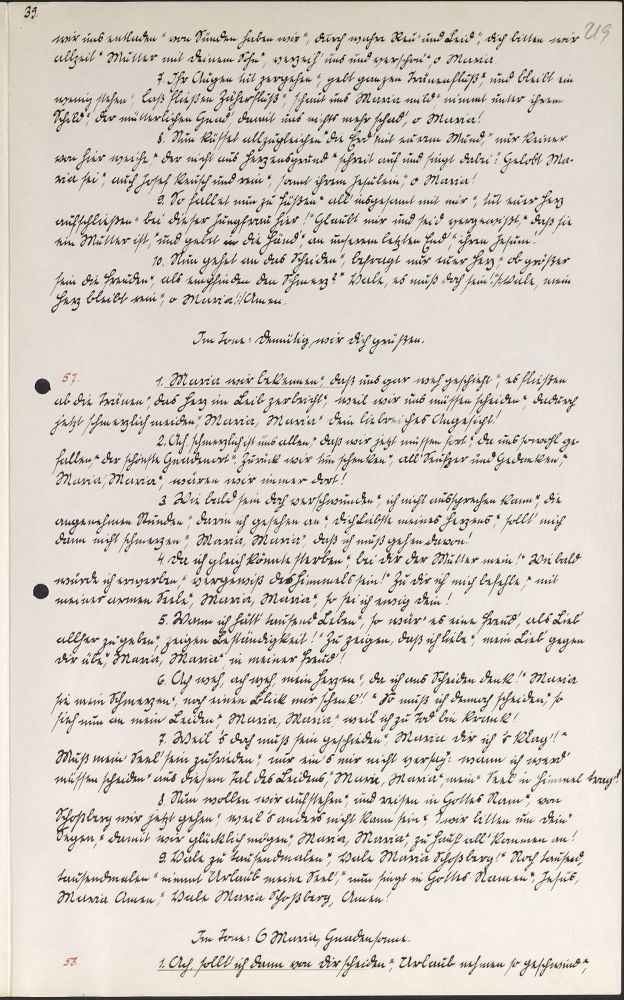 39.
219
wir uns entladen " von Sünden haben wir ", durch wahre Reu' und Leid ", dich bitten wir
allzeit " Mutter mit deinem Sohn ", verzeih' uns und verschon' ", o Maria.
7. Ihr Augen tut zergehen ", gebt ganzen Tränenfluß ", und bleibt ein
wenig stehen ", laß fließen Zäherfluß ", schaut uns Maria mild " nimmt unter ihrem
Schild ", der mütterlichen Gnad', damit uns nichts mehr schad', o Maria!
8. Nun küsset allzugleichen " die Erd' mit eurem Mund ", nur keiner
von hier weiche " der nicht aus Herzensgrund " schreit auf und singt dabei: Gelobt Ma-
ria sei ", auch Josef keusch und rein ", samt ihrem Jesulein ", o Maria!
9. So fallet nun zu Füßen " all' insgesamt mit mir ", tut euer Herz
aufschließen " bei dieser Jungfrau hier! " Glaubt mir und seid vergewißt ", daß sie
ein Mutter ist, " und gebet in die Händ', an unserem letzten End' " ihren Jesum!
10. Nun gehet an das Scheiden ", befragt nur euer Herz ", ob größer
sein die Freuden ", als empfinden den Schmerz? " Vale, es muß doch sein! " Vale, mein
Herz bleibt rein ", o Maria! Amen.
Im Tone: Demütig wir dich grüßen.
57. 1. Maria wir bekennen ", daß uns gar weh geschieht ", es fließen
ab die Tränen ", das Herz im Leib zerbricht ", weil wir uns müssen scheiden ", dadurch
jetzt schmerzlich meiden, Maria, Maria " dein liebreiches Angesicht!
2. Ach, schmerzlich ist uns allen ", daß wir jetzt müssen fort ", da uns so wohl ge-
fallen ", der schönste Gnadenort ". Zurück wir tun schenken ", all' Seufzer und Gedanken ",
Maria, Maria ", wären wir immer dort!
3. Wie bald sein doch verschwunden ", ich nicht aussprechen kann ", die
angenehmen Stunden ", darin ich gesehen an ", dich Liebste meines Herzens ", sollt' mich
dann nicht schmerzen ", Maria, Maria ", daß ich muß gehen davon!
4. Da ich gleich könnte sterben " bei dir der Mutter mein! " Wie bald
würde ich erwerben ", vergewiß des Himmels sein! " Zu dir ich mich befehle ", mit
meiner armen Seele ", Maria, Maria ", so sei ich ewig dein!
5. Wann ich hätt' tausend Leben ", so wär' es eine Freud', als Lieb'
allher zu geben ", zeigen Beständigkeit! " Zu zeigen, daß ich liebe ", mein Lieb' gegen
dir übe ", Maria, Maria " in meiner Freud'!
6. Ach weh, ach weh, mein Herzen ", da ich ans Scheiden denk'! " Maria
sie mein Schmerzen ", noch einen Blick mir schenk'! " So muß ich dennoch scheiden ", so
sieh nun an mein Leiden " Maria, Maria " weil ich zu Tod bin krank!
7. Weil's doch muß sein geschieden ", Maria dir ich's klag'! "
Muß mein Seel' sein zufrieden ", nur ein's mir nicht versag': wann ich werd'
müssen scheiden " aus diesem Tal des Leidens ", Maria, Maria " mein' Seel' in Himmel trag'!
8. Nun wollen wir aufstehen ", und reisen in Gottes Nam' ", von
Schoßberg wir jetzt gehen ", weil's anders nicht kann sein ", wir bitten um dein'
Segen ", damit wir glücklich mögen ", Maria, Maria ", zu Hauß all' kommen an!
9. Vale zu tausendmalen ", Vale Maria Schoßberg! " Noch tausend,
tausendmalen " nimmt Urlaub meine Seel' ", nun singt in Gottes Namen ", Jesus,
Maria Amen ", Vale Maria Schoßberg, Amen!
Im Tone: O Maria, Gnadensonne.
58. 1. Ach, sollt' ich dann von dir scheiden ", Urlaub nehmen so geschwind ",